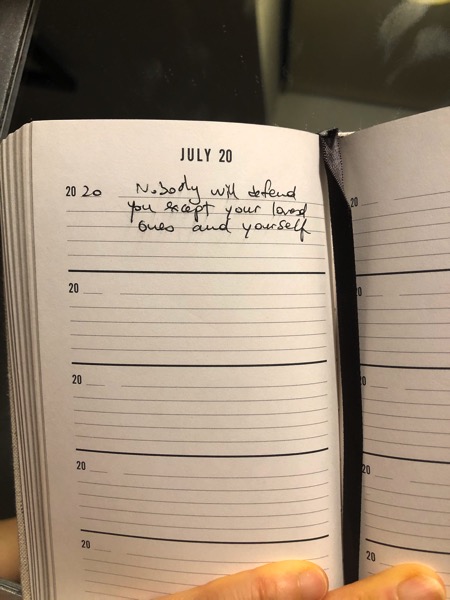 JULY 20
20 20 Nobody will defend
you except your loved
ones and yourself
20
20
20
20
20
20
20
20
20